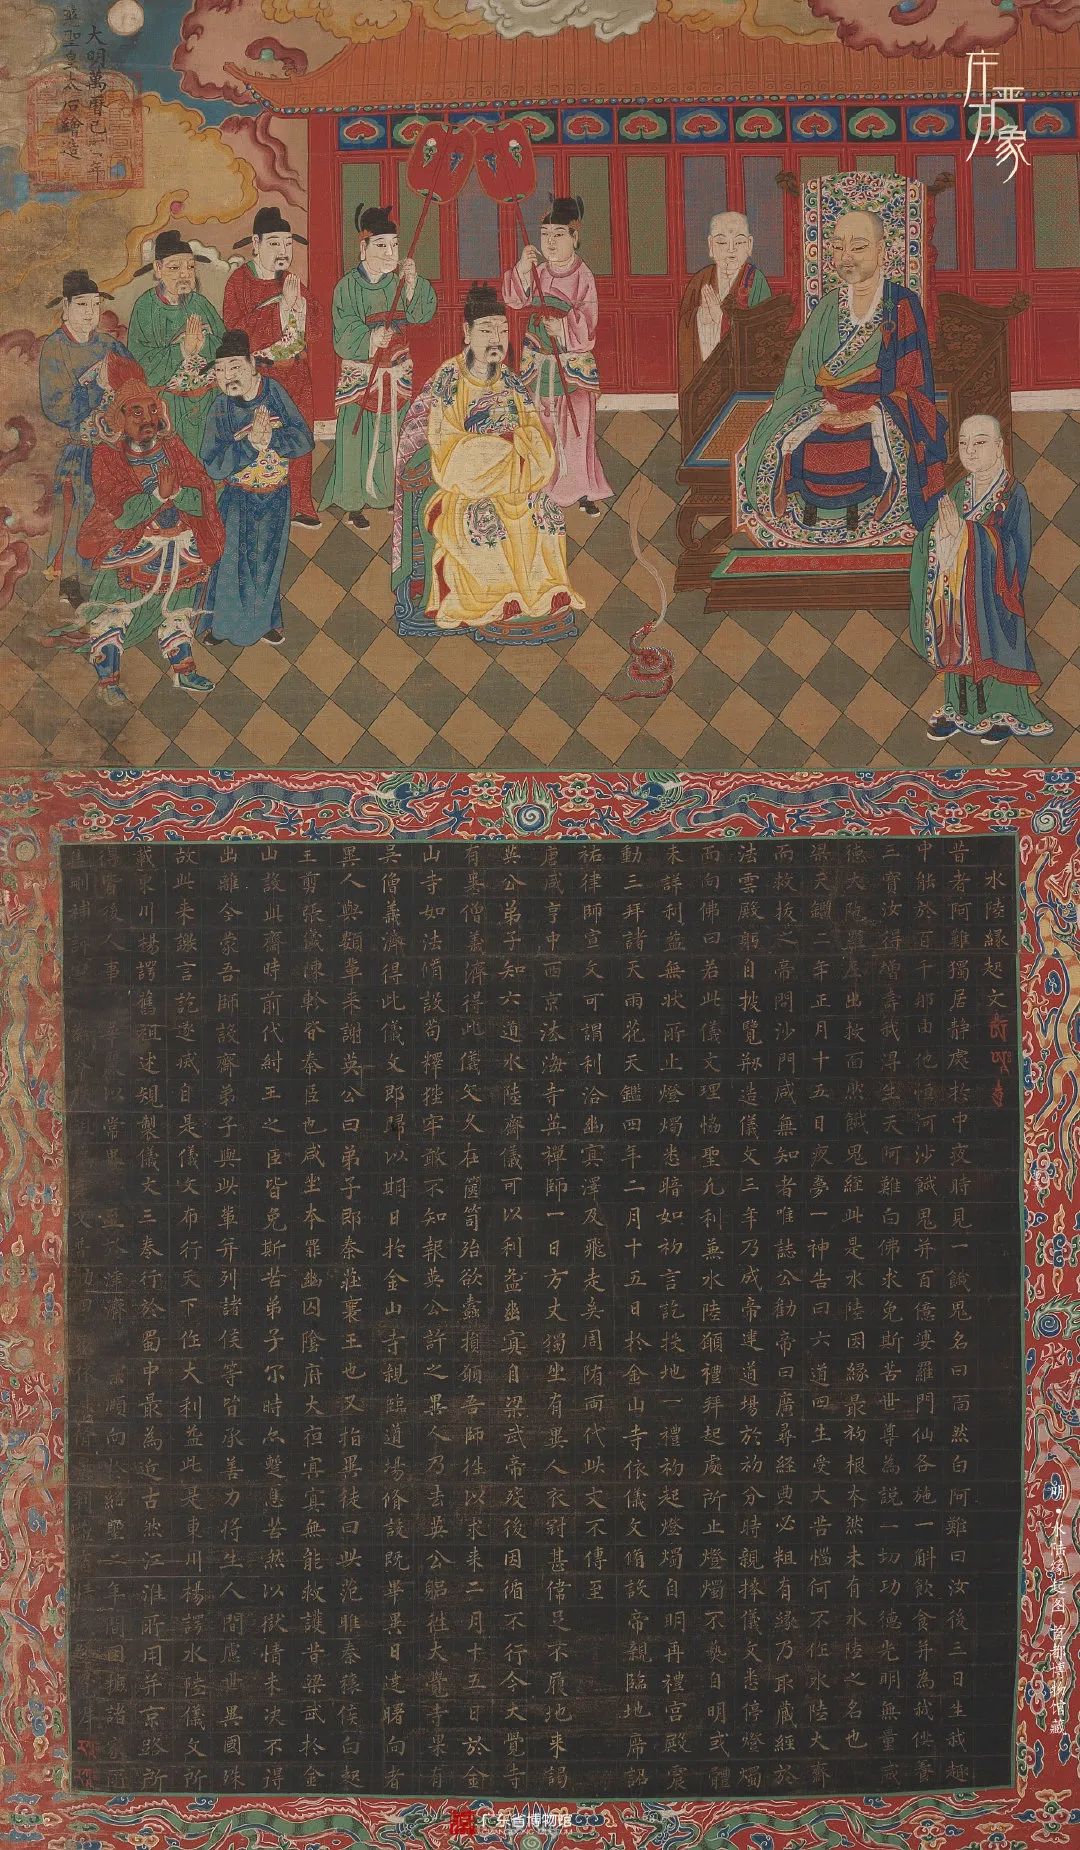 庄严万象
大明萬曆己酉年
慈聖皇太后繪造
水陸緣起文
昔者阿難獨居静處於中夜時見一餓鬼名曰面然白阿難曰汝後三日生我趣
中能於百千那由他恒河沙餓鬼并百億婆羅門仙各施一斛飲食并為我供養
三寶汝得增壽我得生天阿難白佛求免斯苦世尊為說一切功德光明無量威
德大陀羅尼出救面然餓鬼經此是水陸因緣最初根本然未有水陸之名也
梁天鑑二年正月十五日夜夢一神告曰六道四生受大苦惱何不作水陸大齋
而救拔之帝問沙門咸無知者唯誌公勸帝曰廣尋經典必粗有緣乃取藏經於
法雲殿躬自披覽刱造儀文三年乃成帝建道場於初分時親捧儀文悉停燈燭
而向佛曰若此儀文理協聖凡利兼水陸願禮拜起處所止燈燭不爇自明或體
未詳利益無狀所止燈燭悉暗如初言訖投地一禮初起燈燭自明再禮宮殿震
動三拜諸天雨花天鑑四年二月十五日於金山寺依儀文脩設帝親臨地席詔
祐律師宣文可謂利洽幽冥澤及飛走矣周隋兩代此文不傳至
唐咸亨中西京法海寺英禪師一日方丈獨坐有異人衣冠甚偉足不履地來謁
英公弟子知六道水陸齋儀可以利益幽冥自梁武帝歿後因循不行今大覺寺
有吳僧義濟得此儀文久在篋笥殆欲蠹損願吾師往以求來二月十五日於金
山寺如法脩設苟釋狴牢敢不知報英公許之異人乃去英公軀往大覺寺果有
吳僧義濟得此儀文即歸以期日於金山寺親臨道場脩設既畢異日建曙向者
異人與類輩來謝英公曰弟子即秦莊襄王也又指異徒曰此范睢秦穰侯白起
王剪張儀陳軫皆秦臣也咸坐本罪幽囚陰府大夜冥冥無能救護昔梁武於金
山設此齋時前代紂王之臣皆免斯苦弟子尔時亦暫息苦然以獄情未決不得
出離今蒙吾師設齋弟子與此輩并列諸侯等皆承善力將生人間慮世異國殊
故此來謝言訖遂滅自是儀文布行天下作大利益此是東川楊諤水陸儀文所
載東川楊諤舊祖述規製儀文三卷行於蜀中最為近古然江淮所用并京路所
得皆後人事
明·水陆缘起图 首都博物馆藏
广东省博物馆
GUANGDONG MUSEUM